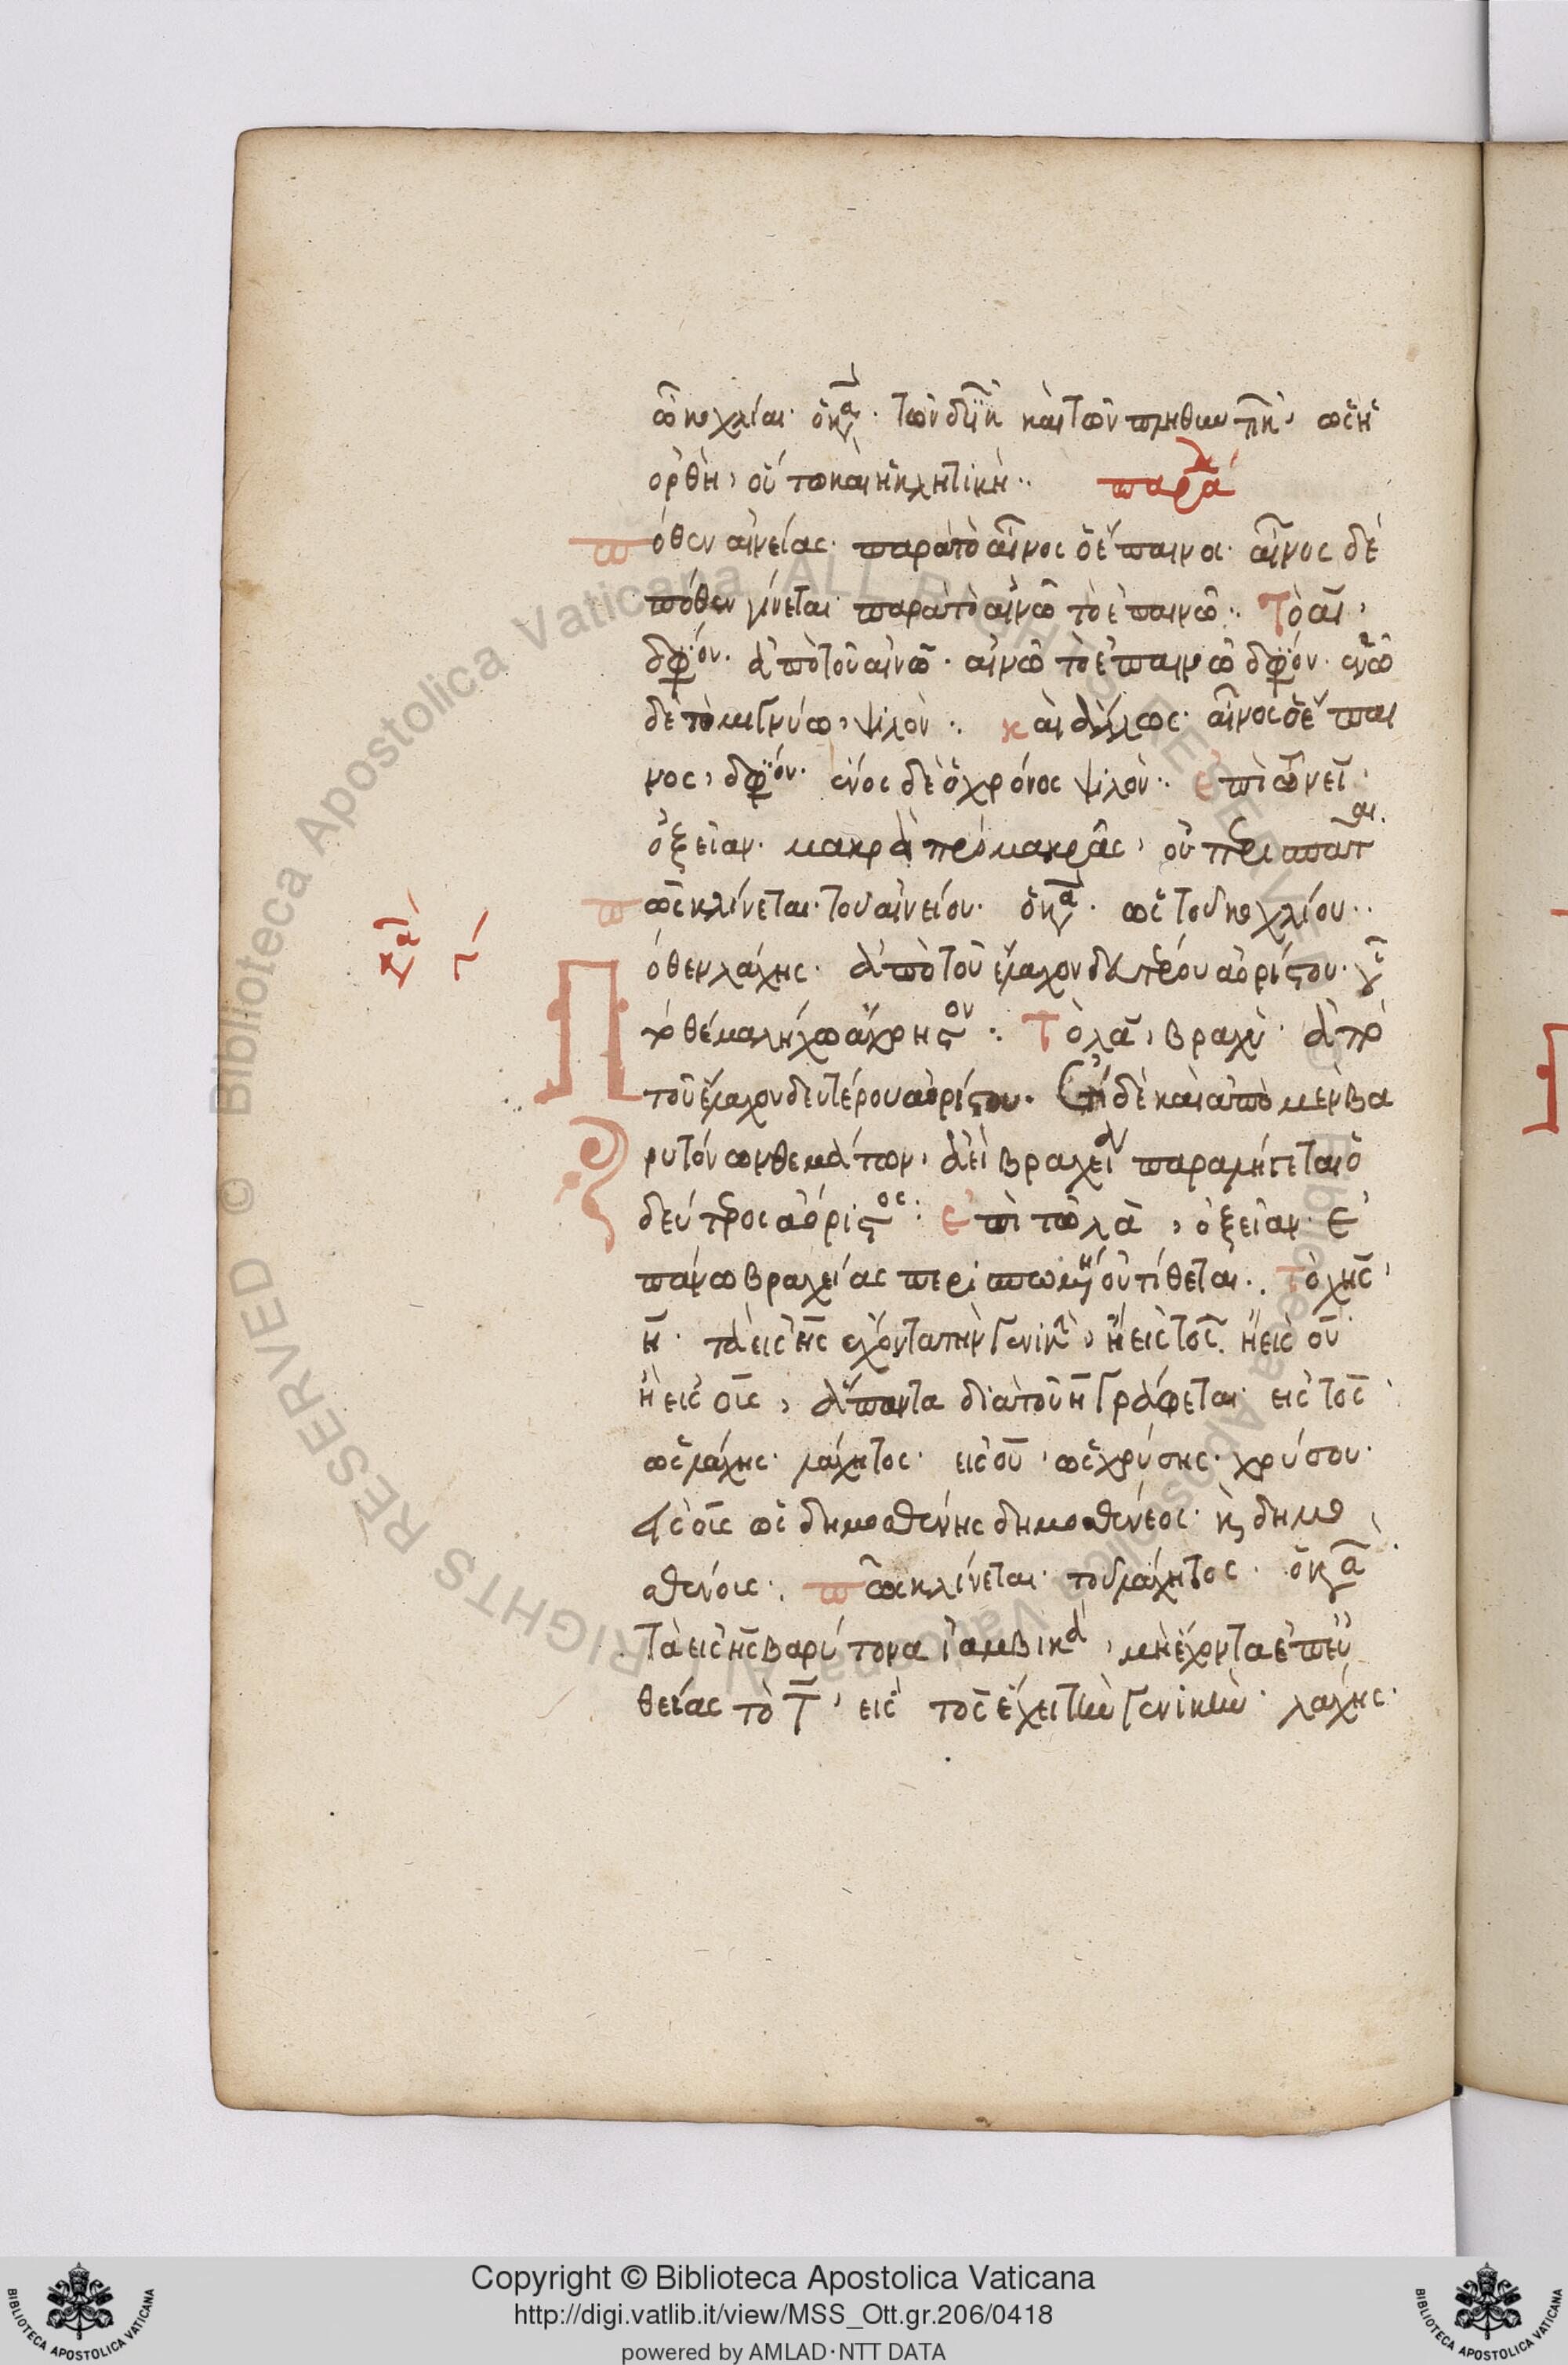 ὦ κοχλίαι· ὁ κα. τῶν δυϊκ καὶ τῶν πληθυν πκ, ὡς ἡ
ὀρθὴ, οὕτω καὶ ἡ κλητικὴ··
πόθεν αἰνείας· παρὰ τὸ αἶνος ὁ ἔπαινος· αἶνος δὲ
πόθεν γίνεται· παρὰ τὸ αἰνῶ τὸ ἐπαινῶ·· Τὸ αι,
δφον· ἀπὸ τοῦ αἰνῶ· αἰνῶ τὸ ἐπαινῶ δφον· ἐνῶ
δὲ τὸ μιγνύω, ψιλόν·. καὶ ἄλλως· αἶνος ὁ ἔπαι
νος, δφον· ἔνος δὲ ὁ χρόνος ψιλόν·· ἐπὶ τὸ νει
ὀξεῖαν· μακρὰ πρὸ μακρᾶς, οὐ περισπᾶται
πῶς κλίνεται· τοῦ αἰνείου· ὁ κα. ὡς τοῦ κοχλίου··
Πόθεν λάχης· ἀπὸ τοῦ ἔλαχον δευτέρου ἀορίστου·
τὸ θέμα λήχω ἄχρηστον·. Τὸ λα, βραχύ· ἀπὸ
τοῦ ἔλαχον δευτέρου ἀορίστου· ἐπεὶ δὲ καὶ ἀπὸ μὲν βα
ρυτόνων θεμάτων, ἀεὶ βραχεῖ παραλήγεται ὁ
δεύτερος ἀόριστος·. ἐπὶ τὸ λα, ὀξεῖαν· ἐ
πάνω βραχείας περισπωμένη οὐ τίθεται·. τὸ χης,
η· τὰ εἰς ης ἔχοντα τὴν γενικὴν, ἢ εἰς τος, ἢ εἰς ου
ἢ εἰς οις, ἅπαντα διὰ τοῦ η γράφεται· εἰς τος
ὡς λάχης· λάχητος· εἰς ου, ὡς χρύσης· χρύσου·
εἰς οις ὡς δημοσθένης δημοσθένεος· κ δημο
σθένοις·. πῶς κλίνεται· τοῦ λάχητος· ὁ κα
Τὰ εἰς ης βαρύτονα ἰαμβικὰ, μὴ ἔχοντα ἐπ' εὐ
θείας τὸ τ, εἰς τος ἔχει τὴν γενικὴν· λαχης·
Copyright © Biblioteca Apostolica Vaticana
http://digi.vatlib.it/view/MSS_Ott.gr.206/0418
powered by AMLAD·NTT DATA
BIBLIOTECA APOSTOLICA VATICANA
BIBLIOTECA APOSTOLICA VATICANA